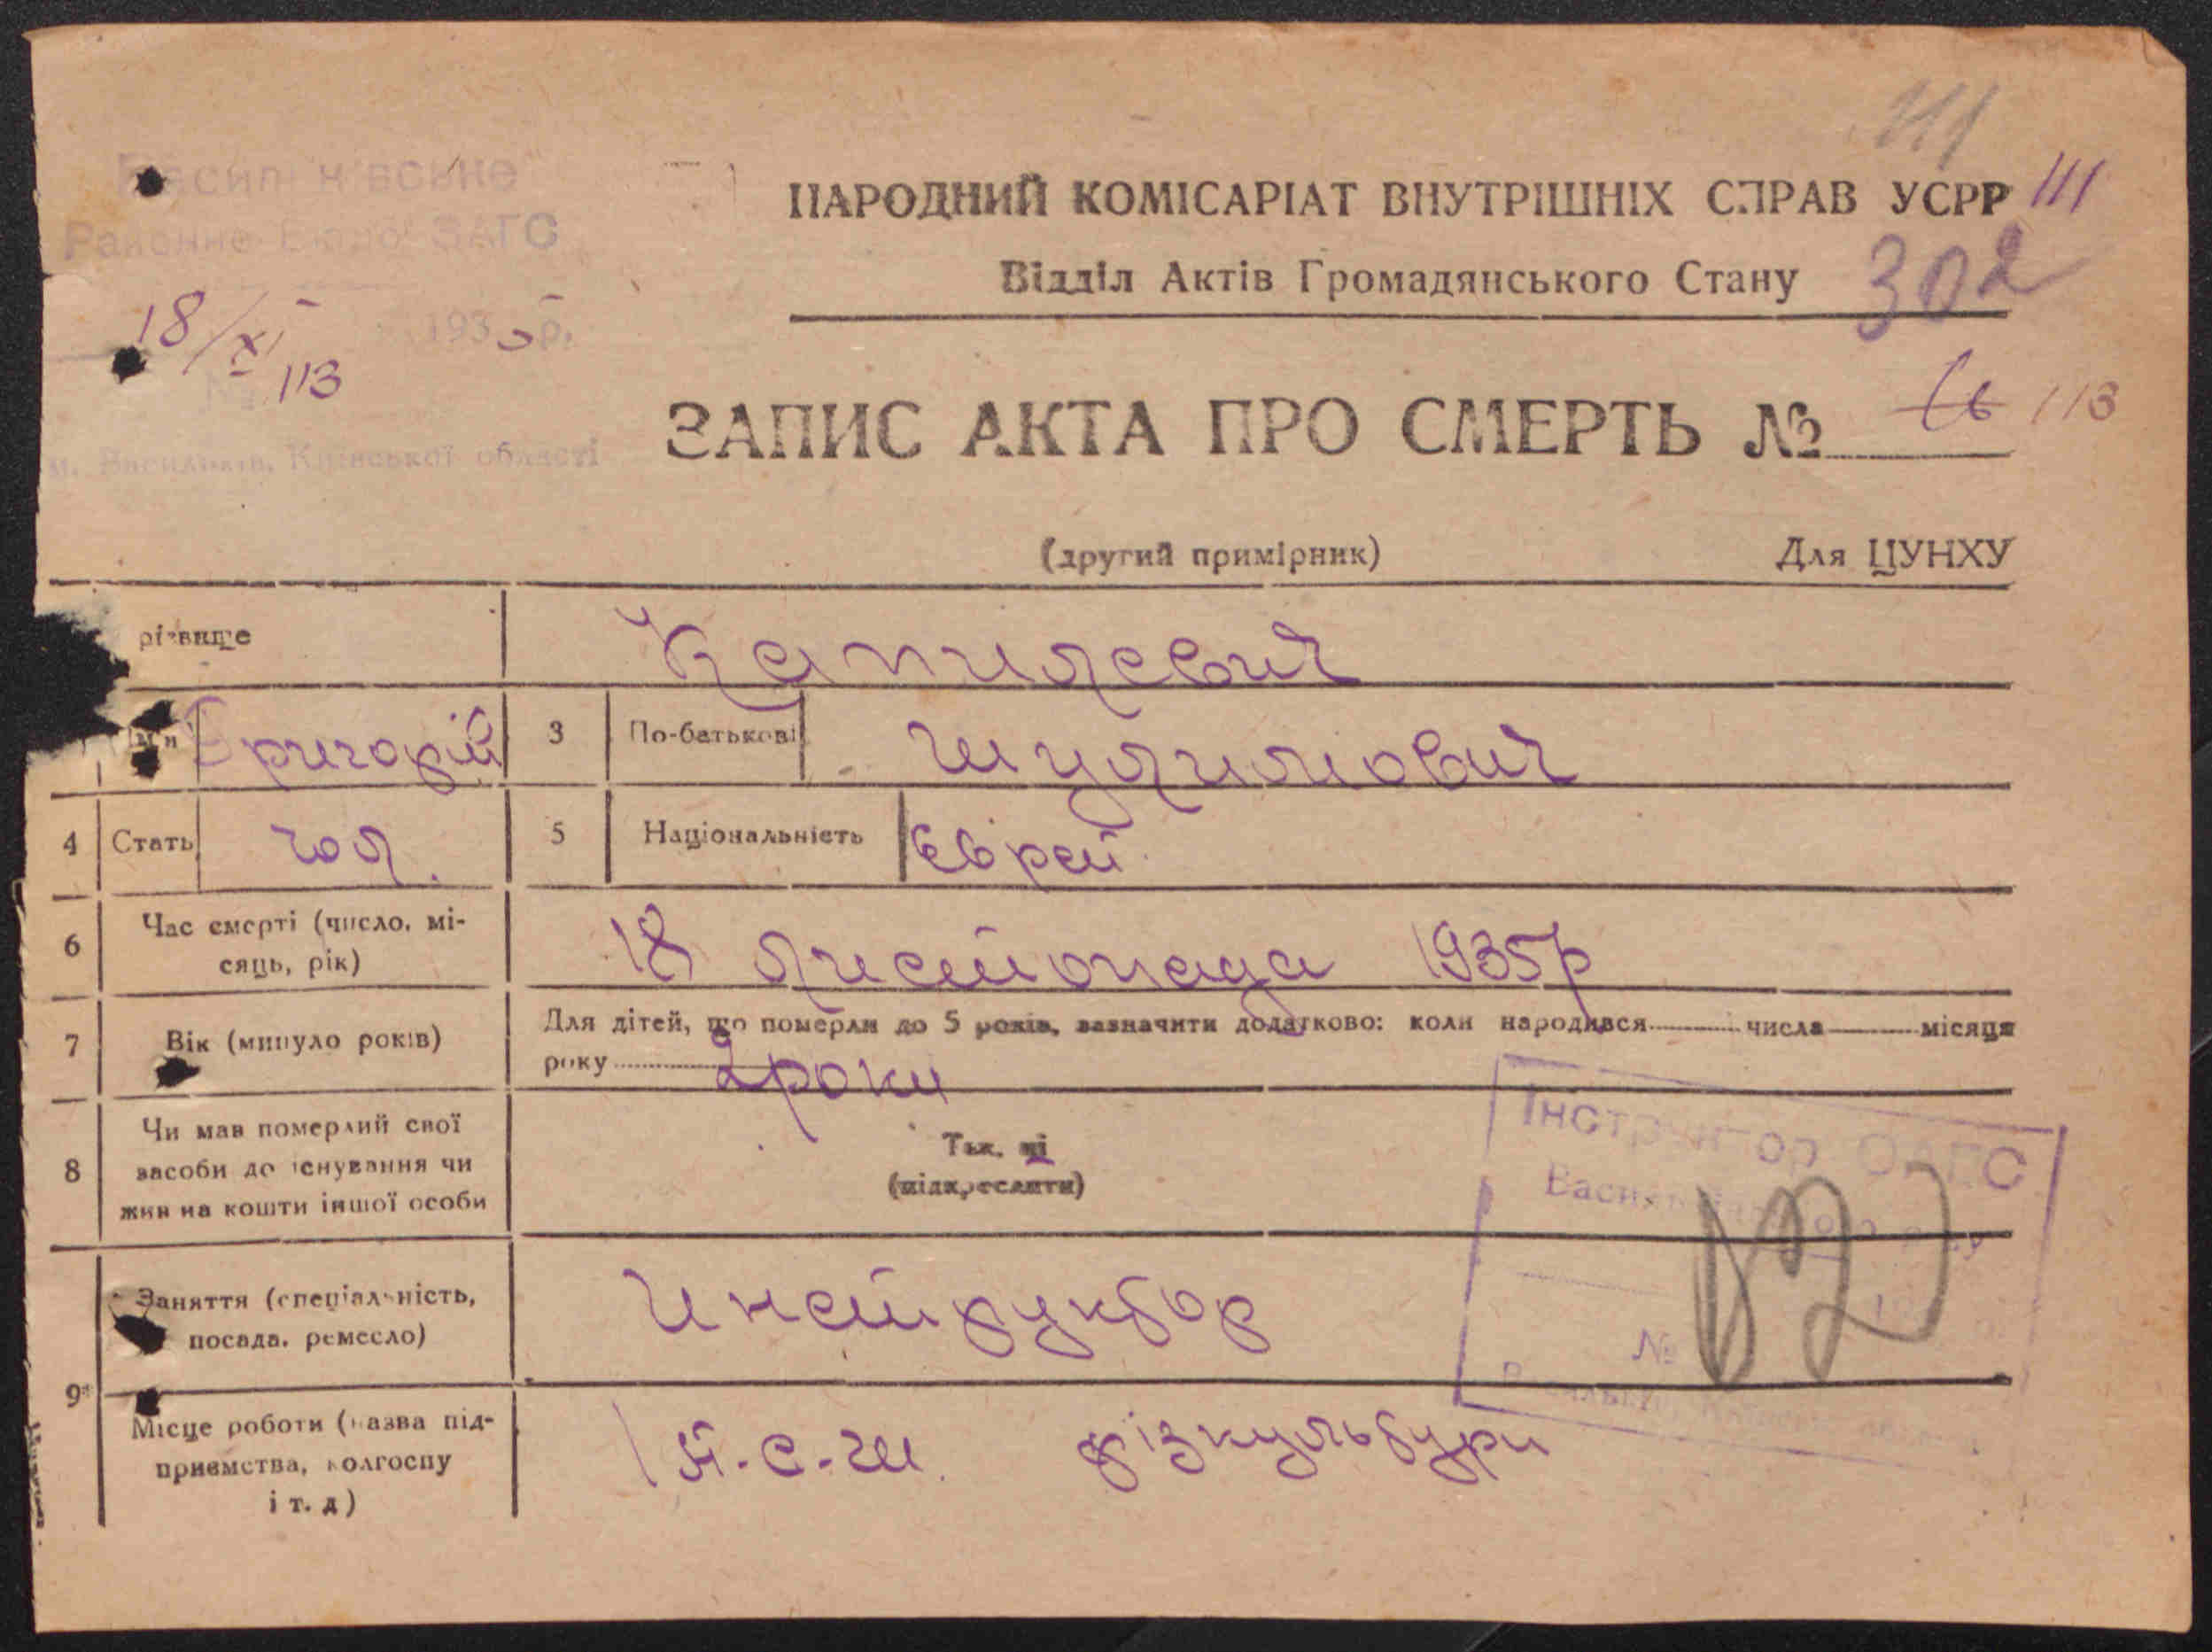 111
Васильківське
Районне Бюро ЗАГС
18/XI 1935 р.
№ 113
м. Васильків, Київської області
НАРОДНИЙ КОМІСАРІАТ ВНУТРІШНІХ СПРАВ УСРР 111
Відділ Актів Громадянського Стану 302
ЗАПИС АКТА ПРО СМЕРТЬ № 113
(другий примірник) Для ЦУНХУ
різвище Капилевич
Григорій 3 По-батькові Шулимович
4 Стать чол. 5 Національність Єврей
6 Час смерті (число, мі-
сяць, рік) 18 листопада 1935р
7 Вік (минуло років) Для дітей, що померли до 5 років, зазначити додатково: коли народився числа місяця
року 2роки
8 Чи мав померлий свої
засоби до існування чи
жив на кошти іншої особи
Так, ні
(підкреслити)
Інструктор ОАГС
9 Заняття (спеціальність,
посада, ремесло) Инструктор
Місце роботи (назва під-
приємства, колгоспу
і т. д) Н.С.Ш. фізкультури
№